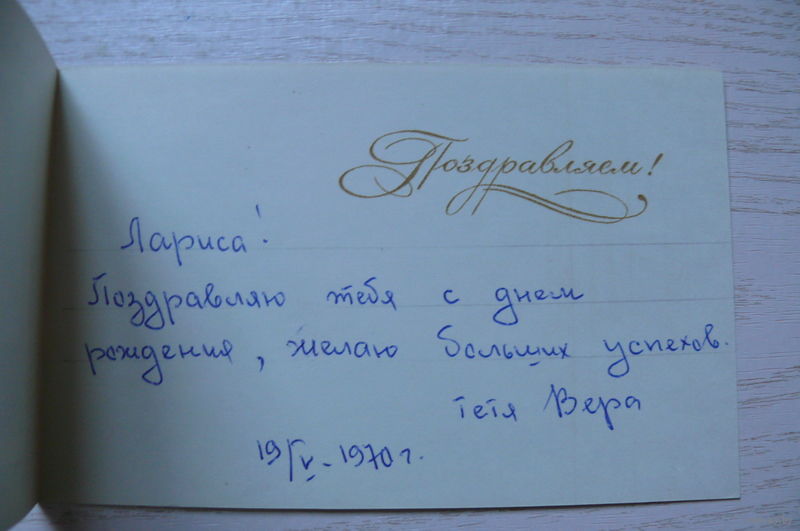 Поздравляем!
Лариса!
Поздравляю тебя с днем
рождения, желаю больших успехов.
тетя Вера
19/V-1970г.